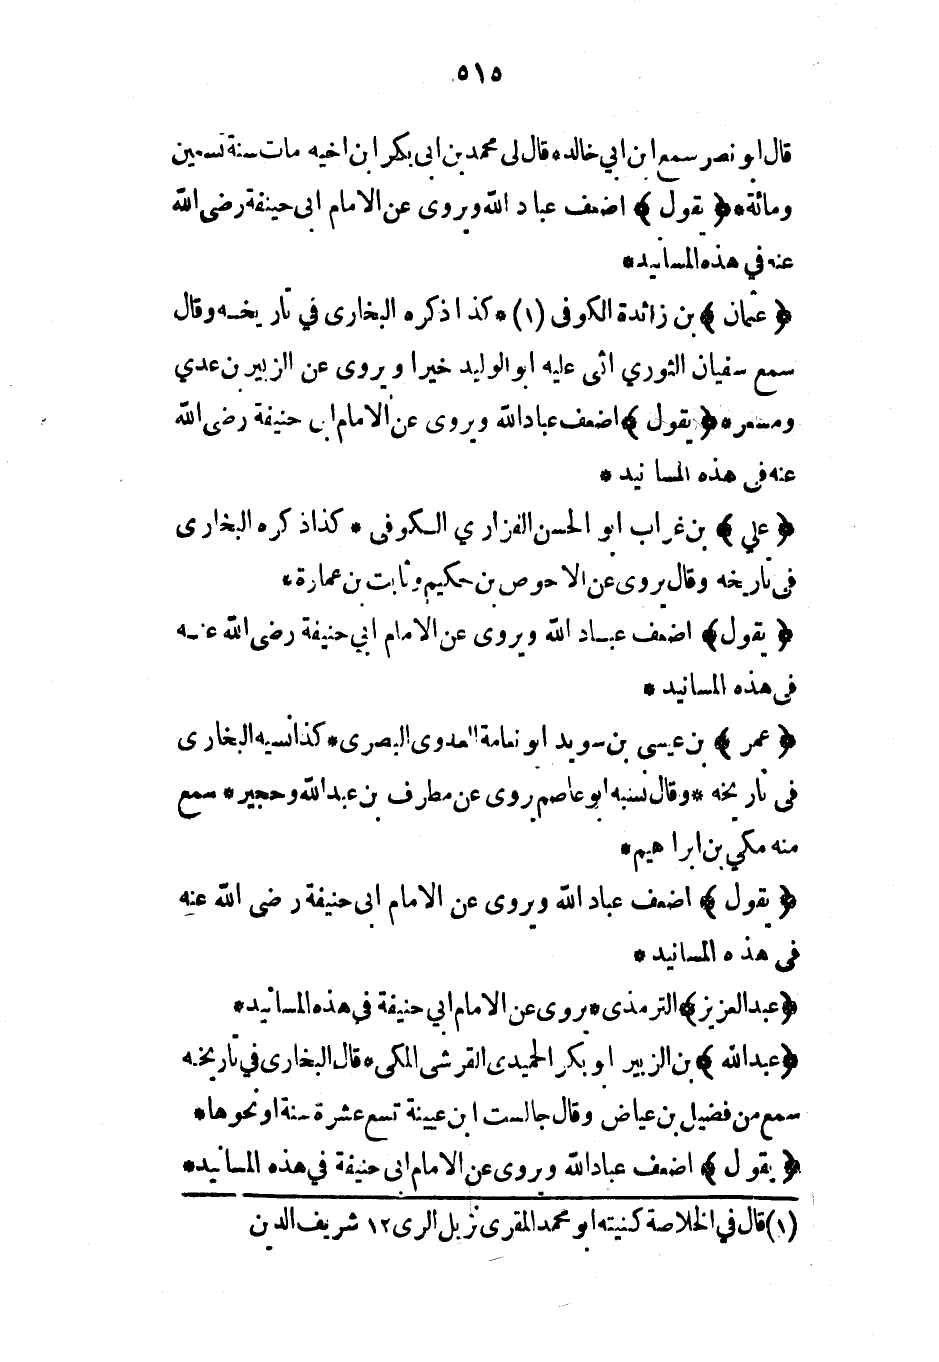 ٥١٥
قال ابو نصر سمع ابن ابي خالد٭ قال لى محمد بن ابى بكر ابن اخيه مات سنة تسعين
ومائة٭ ﴿ يقول ﴾ اضعف عباد الله ويروى عن الامام ابى حنيفة رضى الله
عنه في هذه المسانيد٭
﴿ عثمان ﴾ بن زائدة الكوفى (١) ٭ كذا ذكره البخارى في تاريخه وقال
سمع سفيان الثوري اثنى عليه ابو الوليد خيرا ويروى عن الزبير بن عدي
ومسعر٭ ﴿ يقول ﴾ اضعف عباد الله ويروى عن الامام ابى حنيفة رضى الله
عنه فى هذه المسانيد ٭
﴿ علي ﴾ بن غراب ابو الحسن الفزاري الكوفى ٭ كذا ذكره البخارى
فى تاريخه وقال يروى عن الاحوص بن حكيم وثابت بن عمارة٭
﴿ يقول ﴾ اضعف عباد الله ويروى عن الامام ابي حنيفة رضى الله عنه
فى هذه المسانيد ٭
﴿ عمر ﴾ بن عيسى بن سويد ابو نعامة العدوى البصرى٭ كذا نسبه البخارى
فى تاريخه ٭ وقال نسبه ابو عاصم روى عن مطرف بن عبد الله وحجير٭ سمع
منه مكي بن ابراهيم٭
﴿ يقول ﴾ اضعف عباد الله ويروى عن الامام ابى حنيفة رضى الله عنه
فى هذه المسانيد ٭
﴿ عبد العزيز ﴾ الترمذى٭ يروى عن الامام ابي حنيفة في هذه المسانيد٭
﴿ عبد الله ﴾ بن الزبير ابو بكر الحميدى القرشى المكى٭ قال البخارى في تاريخه
سمع من فضيل بن عياض وقال جالست ابن عيينة تسع عشرة سنة او نحوها٭
﴿ يقول ﴾ اضعف عباد الله ويروى عن الامام ابى حنيفة في هذه المسانيد٭
(١) قال في الخلاصة كنيته ابو محمد المقرى نزيل الرى ١٢ شريف الدين